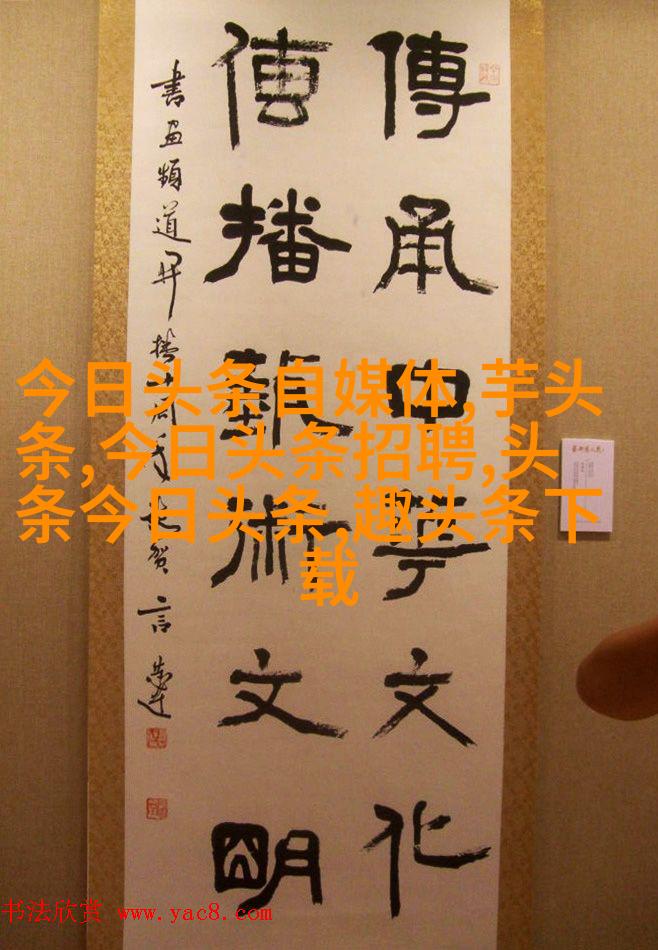 傳承中華文化
傳播藝術文明
書画頻道开播十周年志賀 言恭達
今日头条自媒体,芋头
条,今日头条招聘,头
条今日头条,趣头条下
载
书法欣赏 www.yac8.com